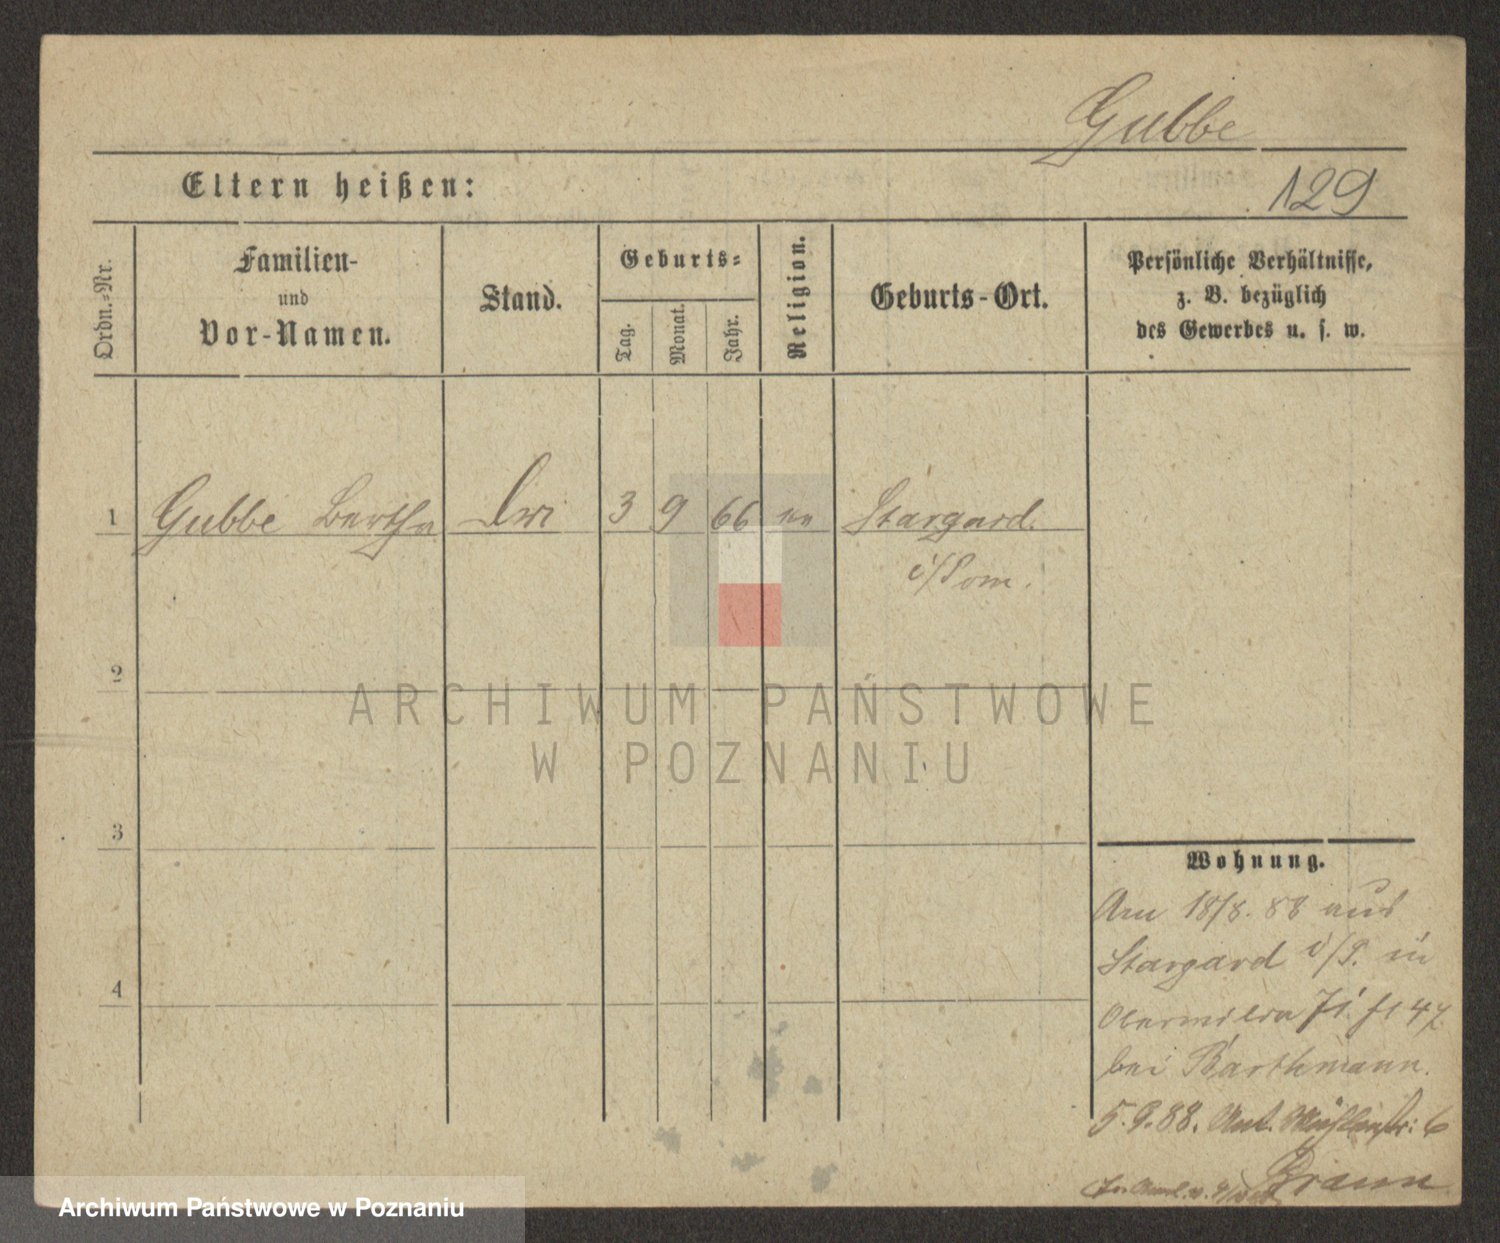 Gubbe
Eltern heißen:
129
Ordn.-Nr.
Familien-
und
Vor-Namen.
Stand.
Geburts-
Tag.
Monat.
Jahr.
Religion.
Geburts-Ort.
Persönliche Verhältnisse,
z. B. bezüglich
des Gewerbes u. s. w.
1 Gubbe Bertha 3 9 66 Stargard.
i/Pom.
2
3
4
ARCHIWUM PAŃSTWOWE
W POZNANIU
Wohnung.
Am 18/8. 88 aus
Stargard i/P. in
47
bei Barthmann.
5.9.88. 6
Braun
Archiwum Państwowe w Poznaniu